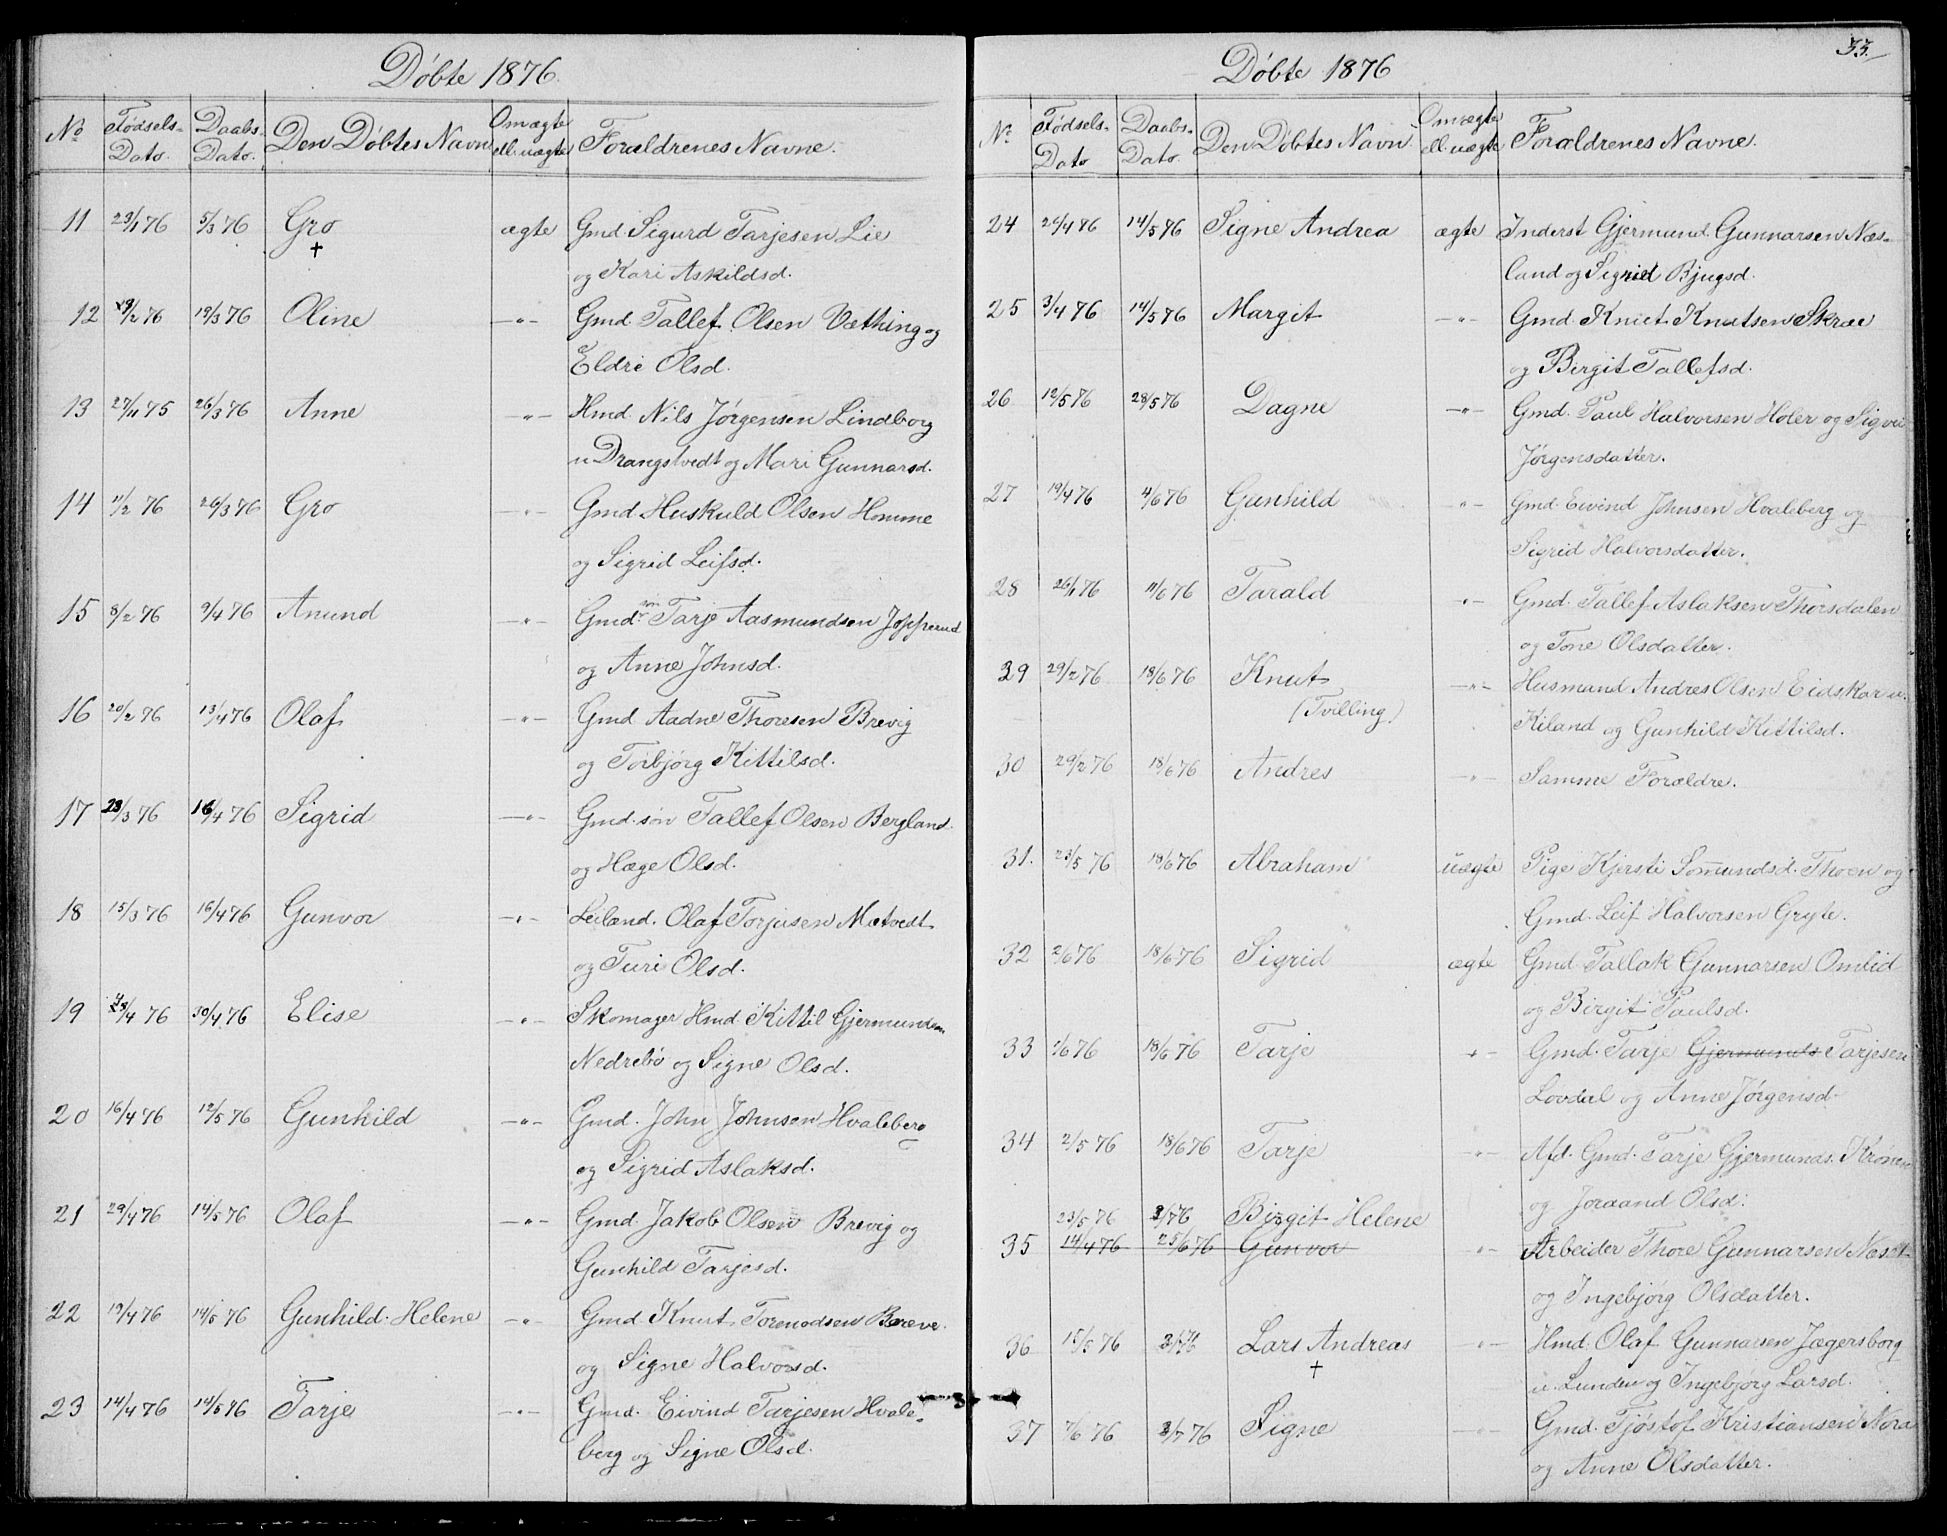 Døbte 1876.
No Fødsels-Dato. Daabs-Dato. Den Døbtes Navn Om ægte ell. uægte Forældrenes Navne.
11 23/1 76 5/3 76 Gro ægte Gmd Sigurd Tarjesen Lie
† og Kari Askildsd.
12 19/2 76 19/3 76 Oline —"— Gmd. Tallef Olsen Væthing og
Eldri Olsd.
13 27/11 75 26/3 76 Anne —"— Hmd. Nils Jørgensen Lindborg
u. Drangstvedt og Mari Gunnarsd.
14 11/2 76 26/3 76 Gro —"— Gmd. Huskuld Olsen Homme
og Sigrid Leifsd.
15 8/2 76 9/4 76 Anund —"— Gmd. søn Tarje Aasmundsen Jopperud
og Anne Johnsd.
16 20/2 76 13/4 76 Olaf —"— Gmd Aadne Thoresen Brevig
og Torbjørg Kittilsd.
17 23/3 76 16/4 76 Sigrid —"— Gmd. søn Tallef Olsen Bergland
og Hæge Olsd.
18 15/3 76 16/4 76 Gunvor —"— Leilænd. Olaf Torjusen Mætvedt
og Turi Olsd.
19 /4 76 30/4 76 Elise —"— Skomager Hmd. Kittil Gjermundsen
Nedrebø og Signe Olsd.
20 16/4 76 12/5 76 Gunhild —"— Gmd. John Johnsen Hvaleberg
og Sigrid Aslaksd.
21 29/4 76 14/5 76 Olaf —"— Gmd. Jakob Olsen Brevig og
Gunhild Tarjesd.
22 19/4 76 14/5 76 Gunhild Helene —"— Gmd. Knut Toremodsen Breve
og Signe Halvorsd.
23 14/4 76 14/5 76 Tarje —"— Gmd. Eivind Tarjesen Hvale-
berg og Signe Olsd.
33.
Døbte 1876
No Fødsels-Dato Daabs-Dato. Den Døbtes Navn Om ægte ell. uægte Forældrenes Navne.
24 /4 76 14/5 76 Signe Andrea ægte Inderst Gjermund Gunnarsen Næs-
land og Sigrid Bjugsd.
25 3/4 76 14/5 76 Margit —"— Gmd. Knut Knutsen Skræe
og Birgit Tallefsd.
26 12/5 76 28/5 76 Dagne —"— Gmd. Paul Halvorsen Moler og Sigvor
Jørgensdatter.
27 19/4 76 4/6 76 Gunhild —"— Gmd. Eivind Johnsen Hvaleberg og
Sigrid Halvorsdatter.
28 26/1 76 11/6 76 Tarald —"— Gmd. Tallef Aslaksen Thorsdalen
og Tone Olsdatter.
29 29/2 76 18/6 76 Knut —"— Husmand Andres Olsen Eidskar u.
(Tvilling) Kiland og Gunhild Kittilsd.
30 29/2 76 18/6 76 Andres —"— Samme Forældre.
31. 23/5 76 18/6 76 Abraham uægte Pige Kjersti Somundsd. Thoen og
Gmd. Leif Halvorsen Gryte.
32 2/6 76 18/6 76 Sigrid ægte Gmd. Tallak Gunnarsen Omlid
og Birgit Paulsd.
33 1/6 76 18/6 76 Tarje —"— Gmd. Tarje Gjermunds Tarjesen
Lovdal og Anne Jørgensd.
34 2/5 76 18/6 76 Tarje —"— Afd. Gmd. Tarje Gjermunds. Kronen
og Joraand Olsd.
23/5 76 2/7 76 Birgit Helene
35 14/4 76 25/6 76 Gunvor —"— Arbeider Thore Gunnarsen Næset
og Ingebjørg Olsdatter.
36 15/5 76 2/7 76 Lars Andreas —"— Hmd. Olaf Gunnarsen Jægersborg
† u. Lunden og Ingebjørg Larsd.
37 7/6 76 2/7 76 Signe —"— Gmd. Tjøstof Kristiansen Nora
og Anne Olsdatter.